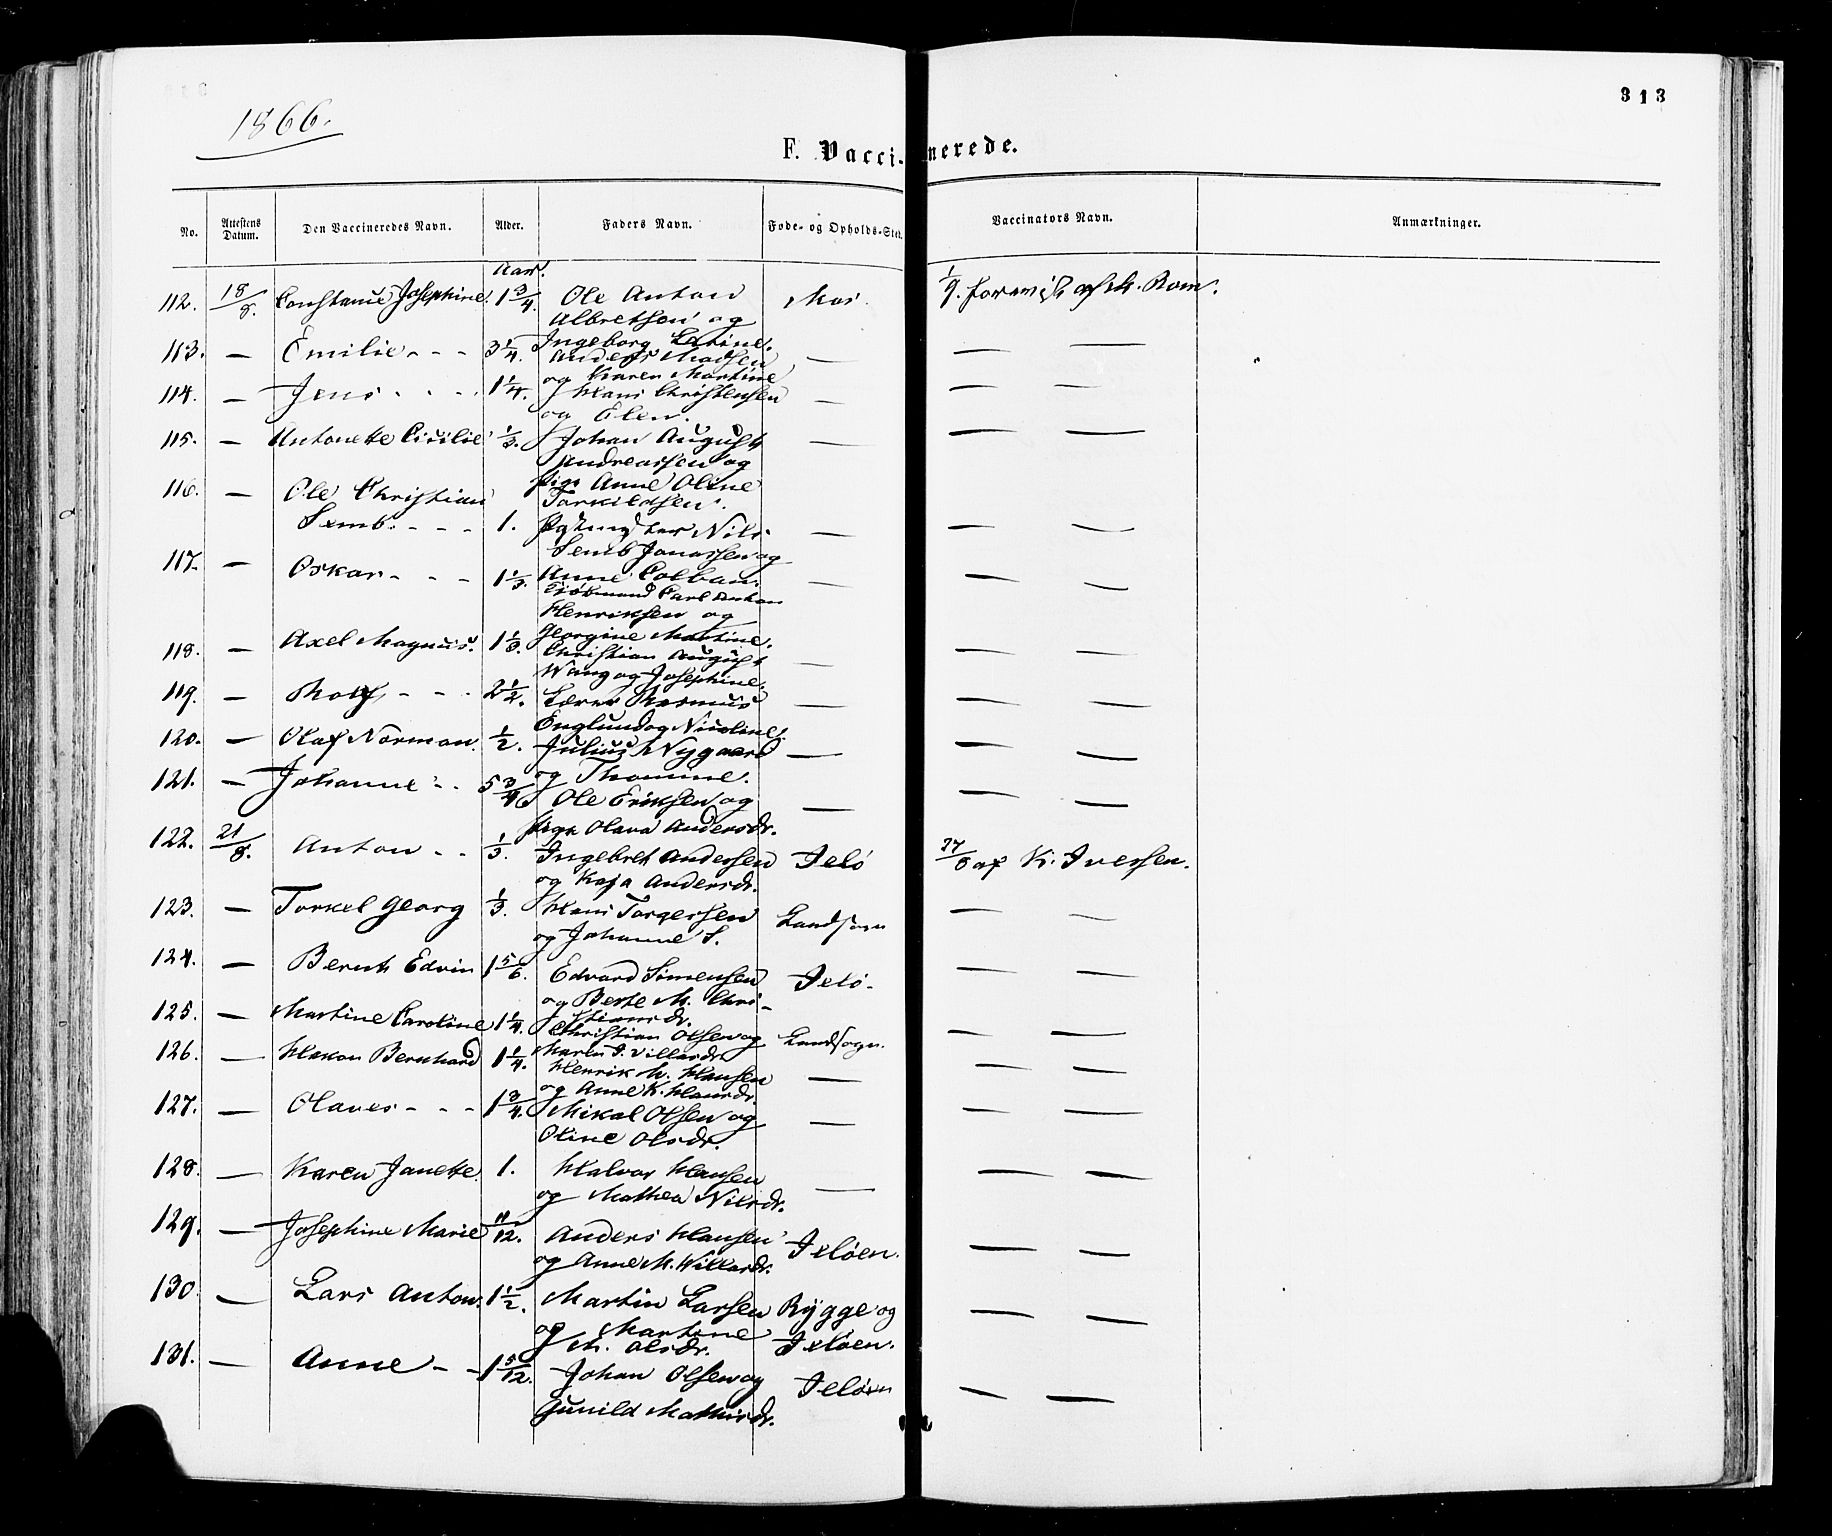 313
1866.
F. Vaccinerede.
No. Attestens Datum. Den Vaccineredes Navn. Alder. Faders Navn. Føde- og Opholds-Sted. Vaccinators Navn. Anmærkninger.
Aar.
112. 18/8. Constance Josephine. 1 3/4. Ole Anton Mos. 1/9.
Albretsen og
Ingeborg
113. — Emilie - - - 3 1/4. Anders Madsen — — —
og Karen Martine
114. — Jens - - - 1 1/4. Hans Christensen — — —
og Elen.
115. — Antonette Cicilie 1/3. Johan August — — —
Andreassen og
pige Anne Oline
Torkildsen.
116. — Ole Christian
Semb. - - - 1. Nils — — —
Semb Jonassen og
Anne Colban.
117. — Oskar - - - 1 1/3. Carl Anton — — —
Henriksen og
Georgine Martine.
118. — Axel Magnus. 1 1/3. Christian August — — —
Wang og Josephine.
119. — Rolf - - - 2 1/2. Lærer Rasmus — — —
Englund og Nicoline.
120. — Olaf Norman. 1/2. Julius Nygaard — — —
og Thomine.
121. — Johanne - - 5 3/4. Ole Eriksen og — — —
pige Olava Andersdr.
122. 21/8. Anton - - 1/3. Ingebret Andersen Jelö af K. Iversen.
og Kaja Andersdr.
123. — Torkel Georg 1/3. Hans Torgersen Landsogn — —
og Johanne S.
124. — Bernth Edvin 1 5/6. Edvard Simensen Jelö. — —
og Berte M. Chri-
stiansdr.
125. — Martine Caroline 1 1/4. Christian Olsen og Landsogn. — —
Maren J. Villasdr.
126. — Hakon Bernhard 1 1/4. Henrik M. Hansen — — —
og Anne K. Hansdr.
127. — Olaves - - - 1 3/4. Mikal Olsen og — — —
Oline Olsdr.
128. — Karen Janette. 1. Halvor Hansen — — —
og Mathea Nilsdr.
129. — Josephine Marie 11/12. Anders Hansen Jelöen. — —
og Anne M. Willasdr.
130. — Lars Anton. 1 1/2. Martin Larsen Rygge og — —
og Martine Jelöen.
M. Olsdr.
131. — Anne - - 1 5/12. Johan Olsen og Jelöen — —
Gunild Mathisdr.